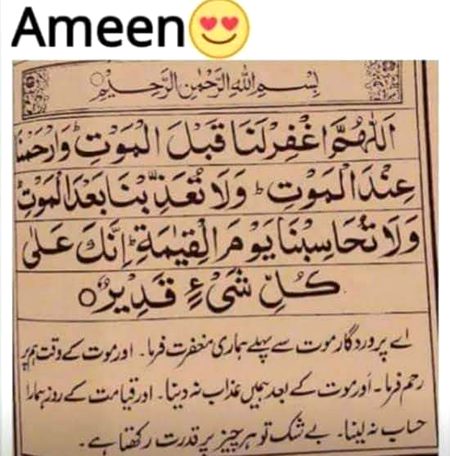 Ameen😍
بِسْمِ اللهِ الرَّحْمٰنِ الرَّحِيْمِ
اَللّٰهُمَّ اغْفِرْلَنَا قَبْلَ الْمَوْتِ وَارْحَمْنَا
عِنْدَ الْمَوْتِ ؕ وَلَا تُعَذِّبْنَا بَعْدَ الْمَوْتِ
وَلَا تُحَاسِبْنَا يَوْمَ الْقِيٰمَةِ ؕ اِنَّكَ عَلٰى
كُلِّ شَیْءٍ قَدِيْرٌ ○
اے پروردگار موت سے پہلے ہماری مغفرت فرما۔ اور موت کے وقت ہم پر
رحم فرما۔ اور موت کے بعد ہمیں عذاب نہ دینا۔ اور قیامت کے روز ہمارا
حساب نہ لینا۔ بے شک تو ہر چیز پر قدرت رکھتا ہے۔